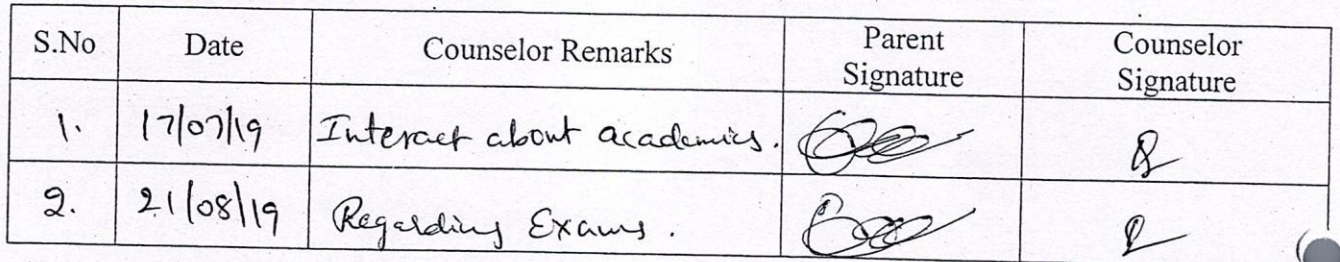 S.No Date Counselor Remarks Parent Signature Counselor Signature
1. 17/07/19 Interact about academics.
2. 21/08/19 Regarding Exams.